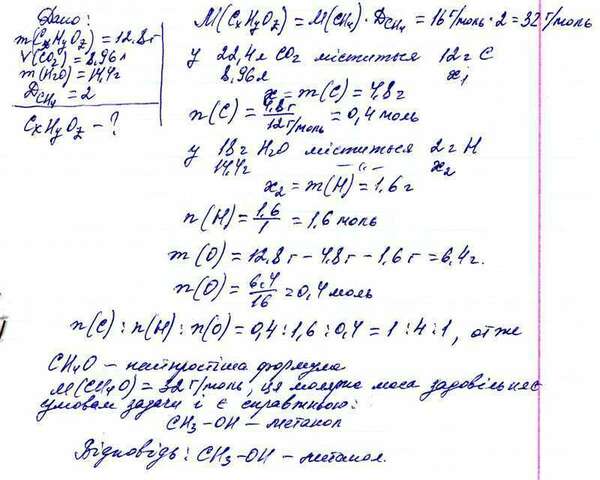 Дано:
m(CxHyOz)=12.8г
V(CO2)=8,96л
m(H2O)=14,4г
DCH4=2
CxHyOz-?
M(CxHyOz)=M(CH4)·DCH4=16г/моль·2=32г/моль
у 22,4л CO2 міститься 12г C
8,96л x1
x1=m(C)=4,8г
n(C)=4,8г/12г/моль=0,4моль
у 18г H2O міститься 2г H
14,4г -"- x2
x2=m(H)=1,6г
n(H)=1,6/1=1,6моль
m(O)=12,8г-4,8г-1,6г=6,4г.
n(O)=6,4/16=0,4моль
n(C):n(H):n(O)=0,4:1,6:0,4=1:4:1, отже
CH4O – найпростіша формула
M(CH4O)=32г/моль, ця молярна маса задовільняє
умовам задачі і є справжньою:
CH3-OH – метанол
Відповідь: CH3-OH – метанол.